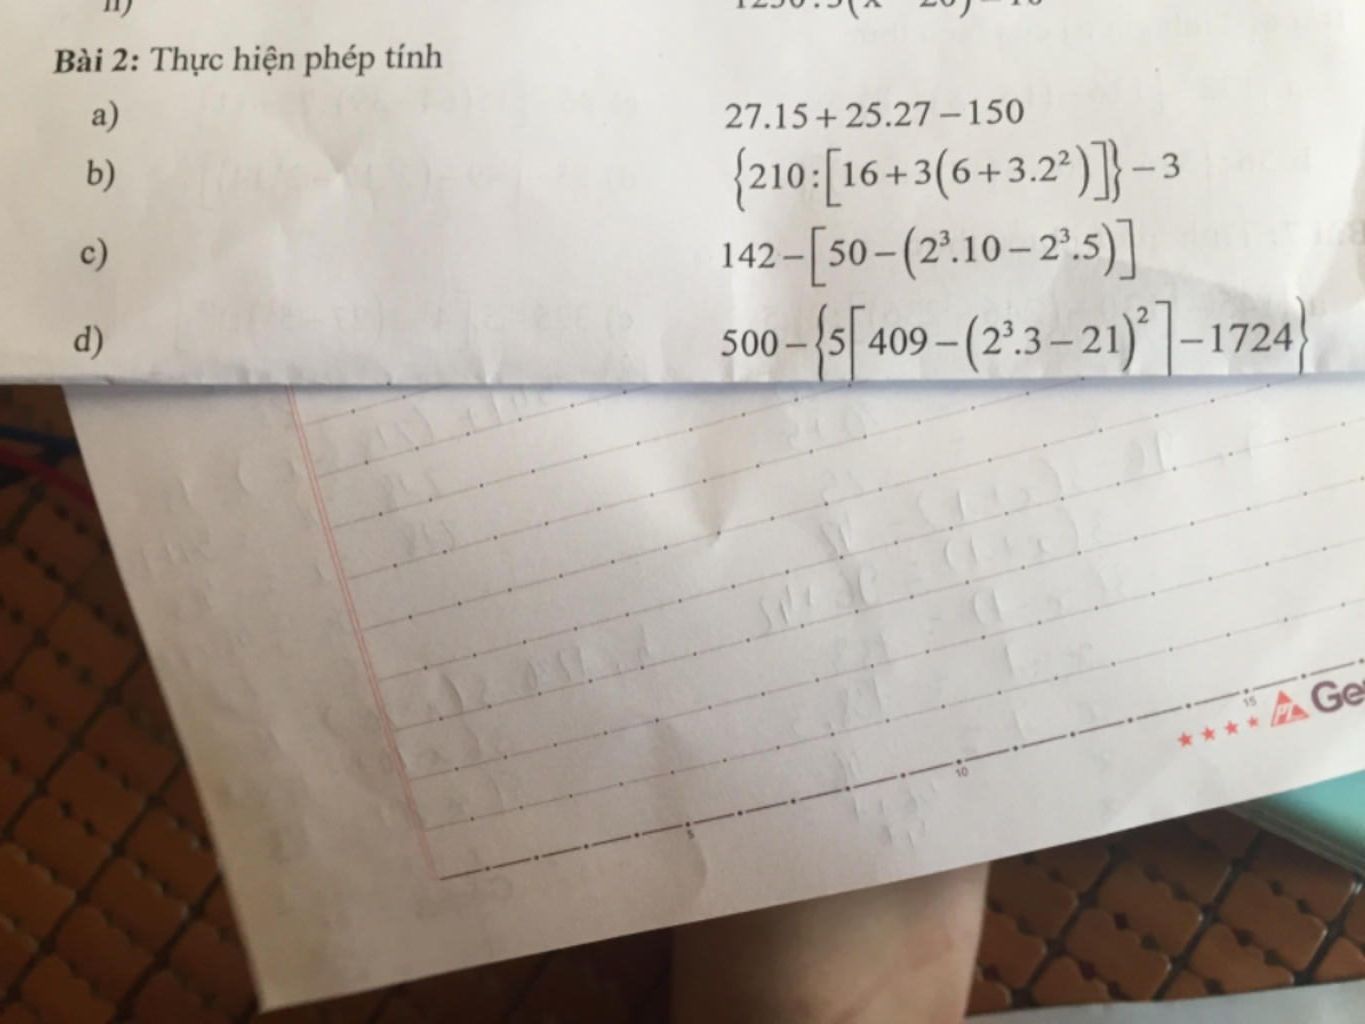 Bài 2: Thực hiện phép tính
a) 27.15 + 25.27 – 150
b) {210:[16+3(6+3.2²)]} – 3
c) 142 – [50 – (2³.10 – 2³.5)]
d) 500 – {5[409 – (2³.3 – 21)²] – 1724}
5
10
15